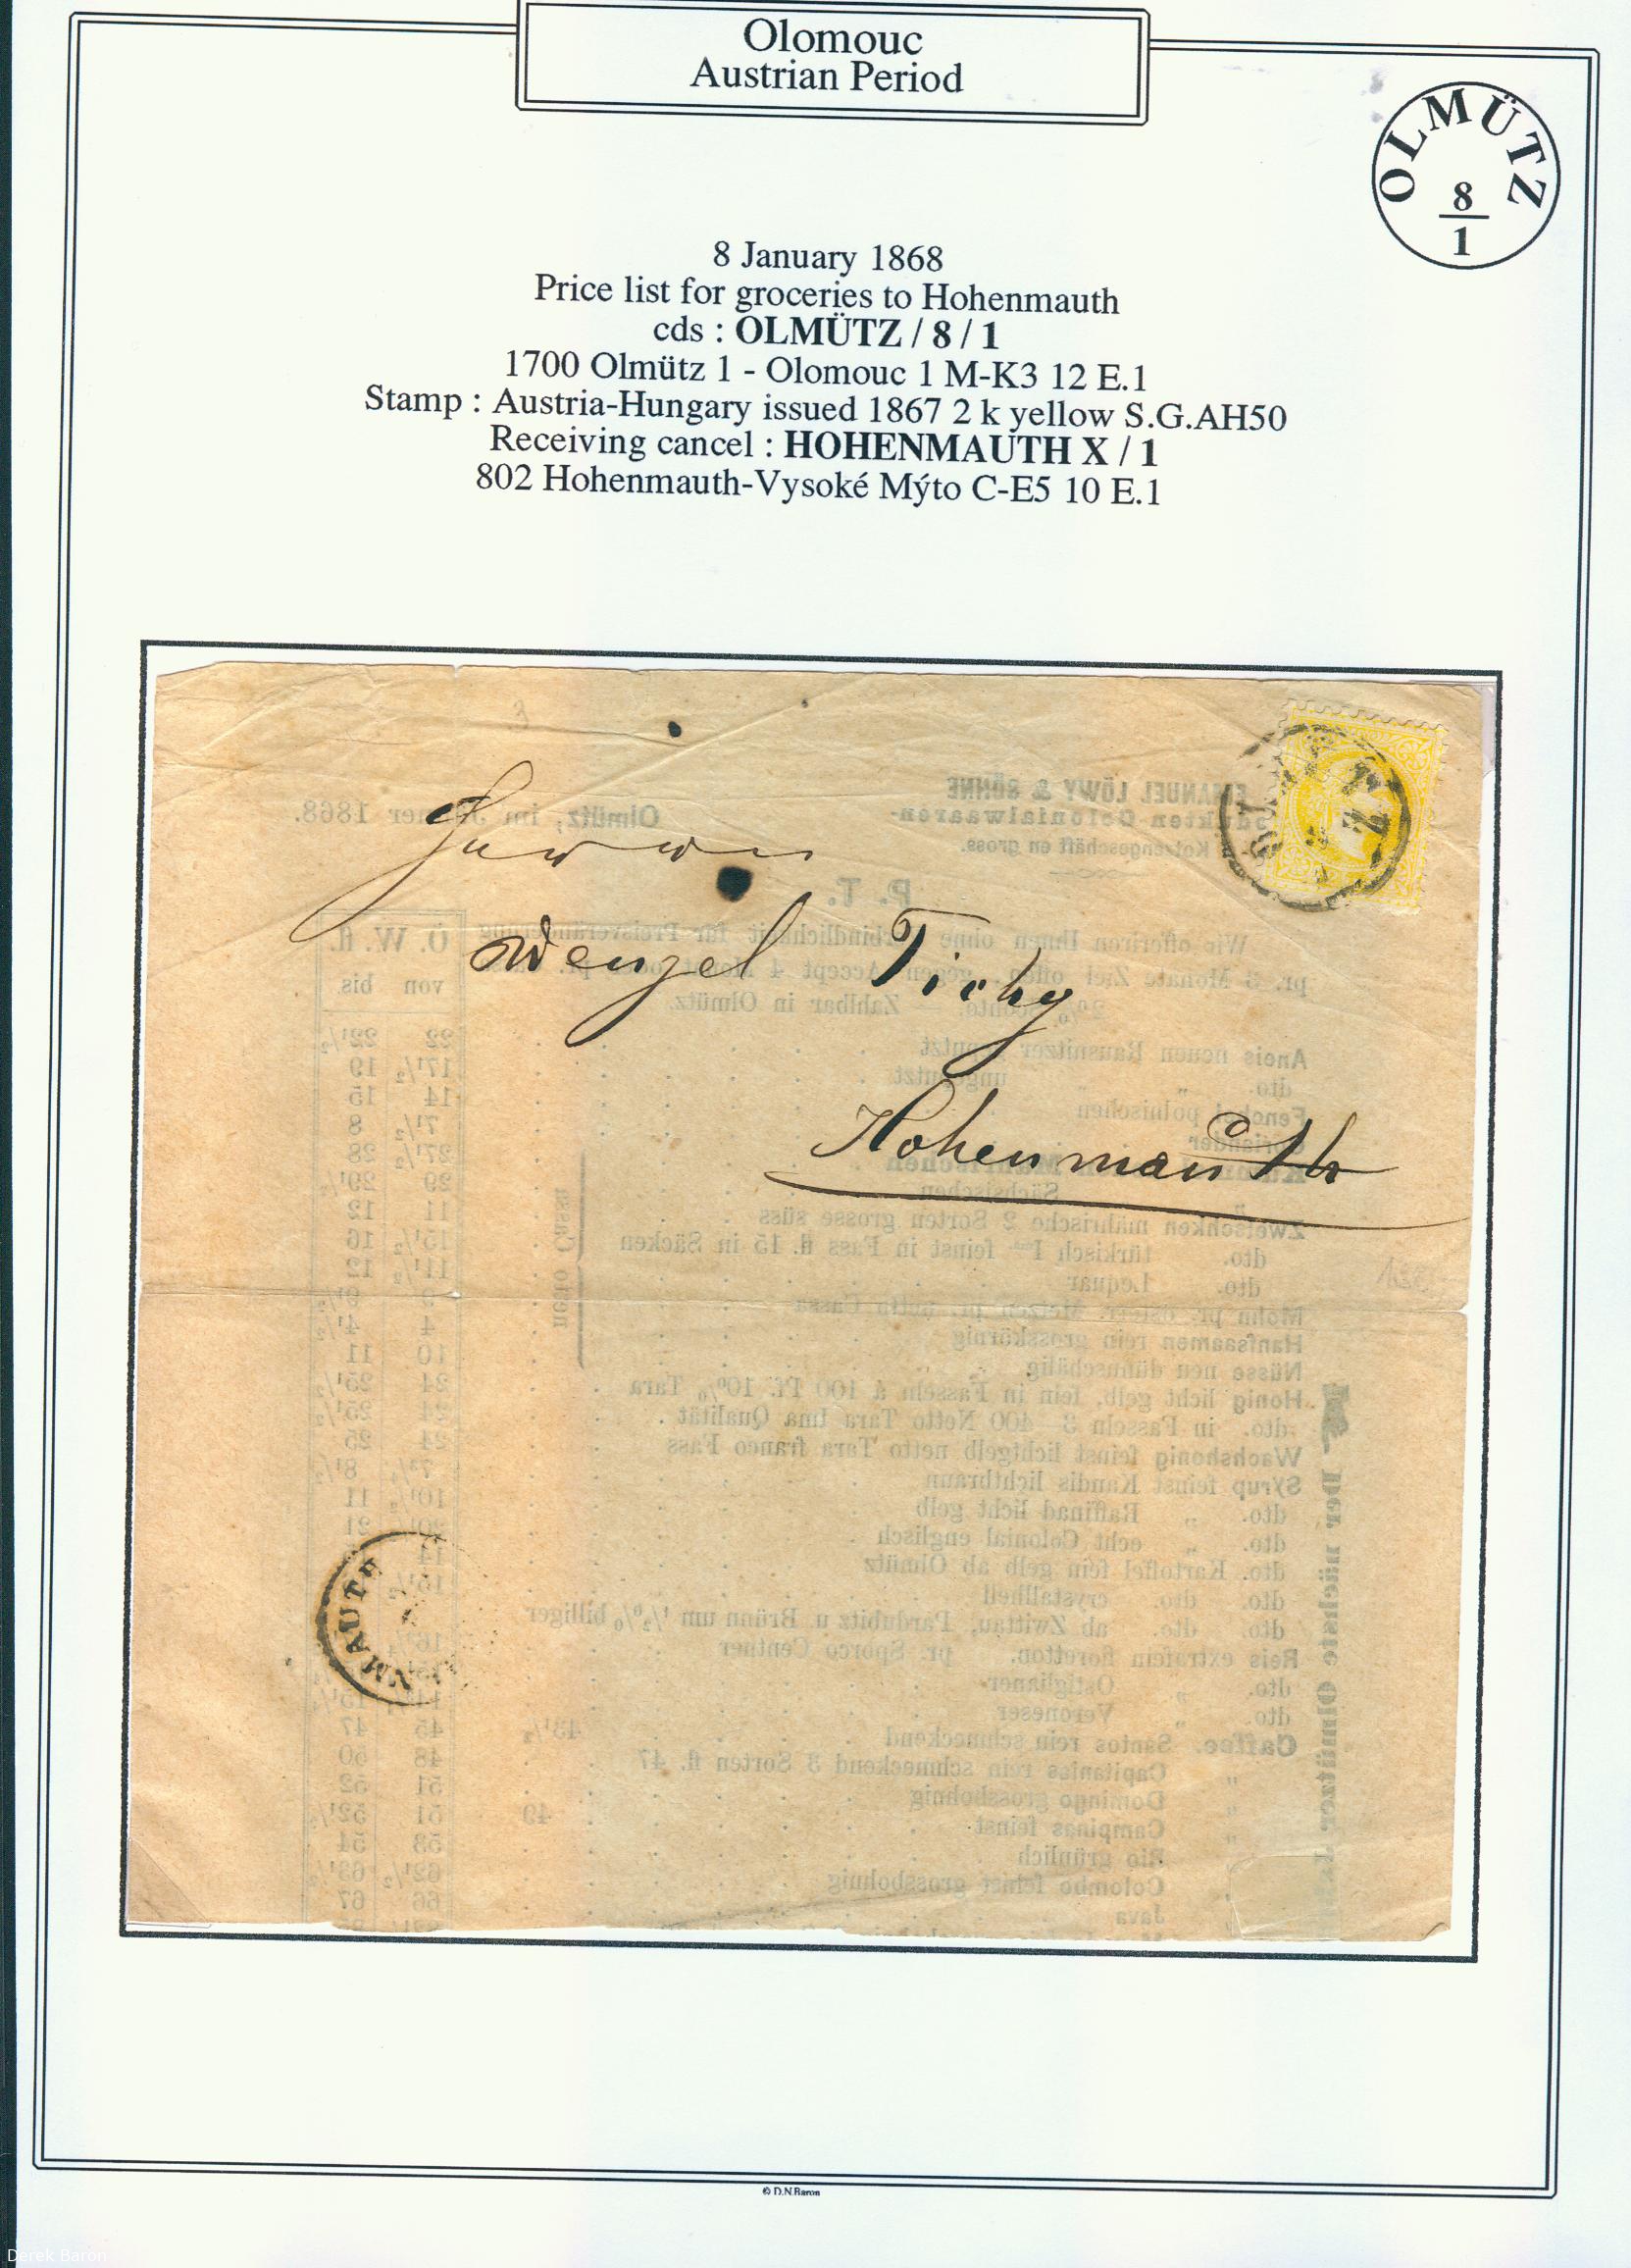 Olomouc
Austrian Period
OLMÜTZ
8
1
8 January 1868
Price list for groceries to Hohenmauth
cds : OLMÜTZ / 8 / 1
1700 Olmütz 1 - Olomouc 1 M-K3 12 E.1
Stamp : Austria-Hungary issued 1867 2 k yellow S.G.AH50
Receiving cancel : HOHENMAUTH X / 1
802 Hohenmauth-Vysoké Mýto C-E5 10 E.1
EMANUEL LÖWY & SÖHNE
Olmütz, im Jänner 1868.
Colonialwaaren-
Kotzengeschäft en gross.
P. T.
Herrn
Wenzel Tichy
Hohenmauth
Wir offeriren Ihnen ohne für Preisveränderung
Ö. W. fl.
pr. 3 Monate Ziel gegen Accept 4 pr.
von bis
Zahlbar in Olmütz.
Aneis neuen Rausnitzer 22 22½
dto. „ ungeputzt 17½ 19
polnischen 14 15
7½ 8
27½ 28
Sächsischen 29 29½
Zwetschken mährische 2 Sorten grosse süss 11 12
dto. türkisch Ima feinst in Fass fl. 15 in Säcken 15½ 16
dto. Lequar 11½ 12
netto Cassa
Mohn pr. österr. Metzen pr. netto Cassa
Hanfsaamen rein grosskörnig 4 4½
Nüsse neu dünnschälig 10 11
Honig licht gelb, fein in Fasseln á 100 Pf. 10% Tara 24 25½
dto. in Fasseln 3—400 Netto Tara Ima Qualität 24 25½
Wachshonig feinst lichtgelb netto Tara franco Fass 24 25
Syrup feinst Kandis lichtbraun 8½
dto. „ Raffinad licht gelb 10½ 11
dto. „ echt Colonial englisch 21
dto. Kartoffel fein gelb ab Olmütz 14
dto. dto. crystallhell 15½
dto. dto. ab Zwittau, Pardubitz u Brünn um ½% billiger
Reis extrafein fioretton. pr. Sporco Centner
dto. „ Ostiglianer
dto. „ Veroneser
Caffee. Santos rein schmeckend 43½ 45 47
„ Capitanias rein schmeckend 3 Sorten fl. 47 48 50
„ Domingo grossbohnig 51 52
„ Campinas feinst 49 51 52½
„ Rio grünlich 53 54
„ Colombo feinst grossbohnig 62½ 63½
Java 66 67
Der nächste Olmützer
NMAUTH
© D.N.Baron
Derek Baron